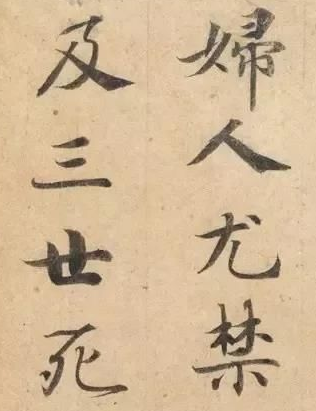 婦人尤禁
及三世死